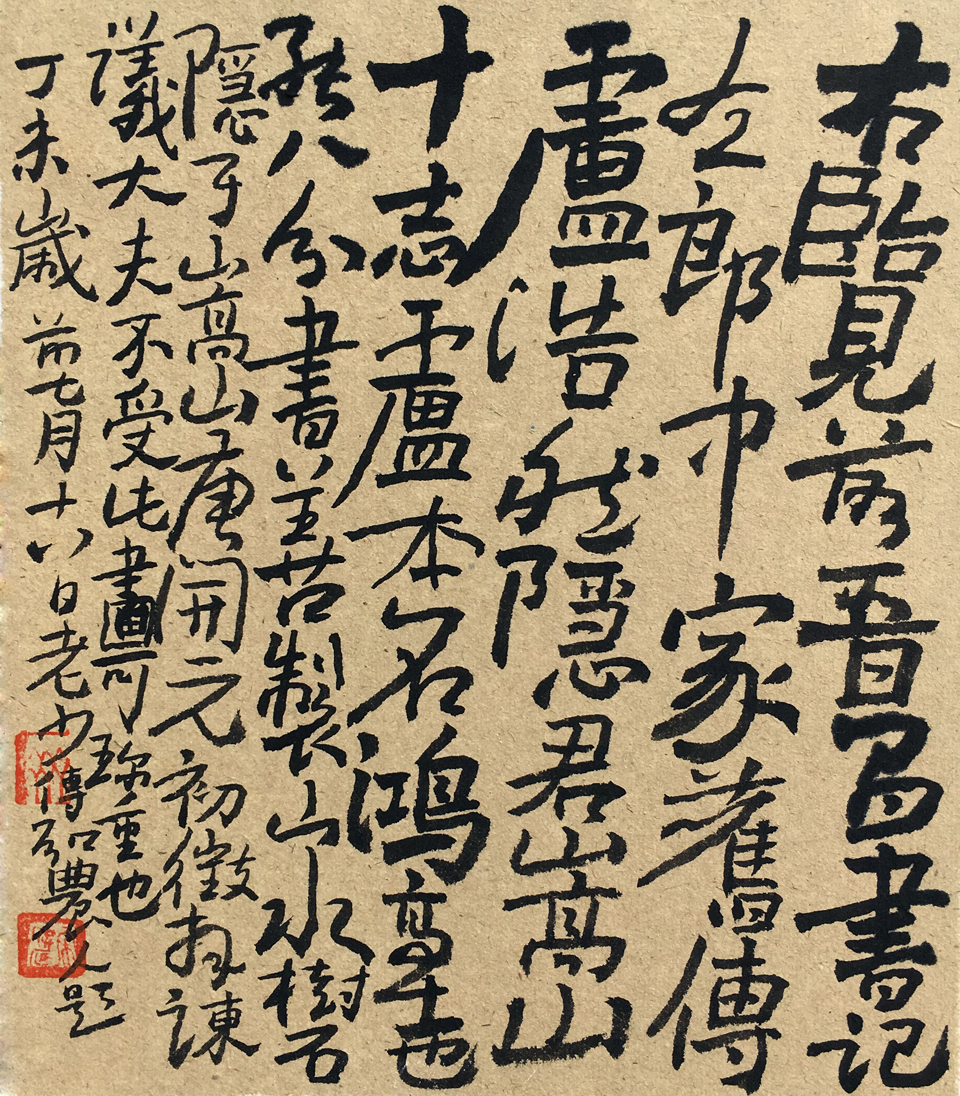 右覽前晉昌書記
左郎中家舊傳
盧浩然隱居嵩山
十志盧本名鴻高士也
能八分書善製山水樹石
隱于嵩山唐開元初徵拜諫
議大夫不受此畫可珍重也
丁未歲前七月十八日老少傅弘農人題